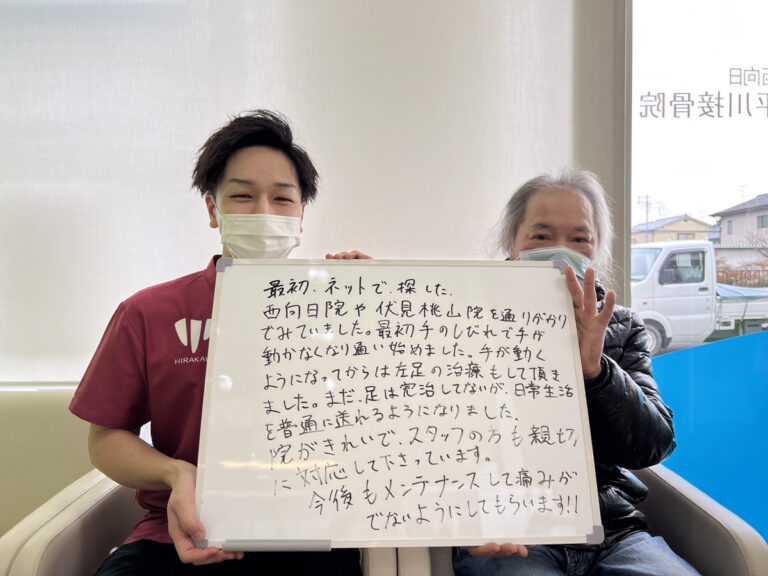 西向日
平川接骨院
最初、ネットで、探した、
西向日院や伏見桃山院を通りがかり
でみていました。最初手のしびれで手が
動かなくなり通い始めました。手が動く
ようになってからは左足の治療もして頂き
ました。まだ、足は完治してないが、日常生活
を普通に送れるようになりました、
院がきれいで、スタッフの方も親切
に対応して下さっています。
今後もメンテナンスして痛みが
でないようにしてもらいます!!
HIRAKAW